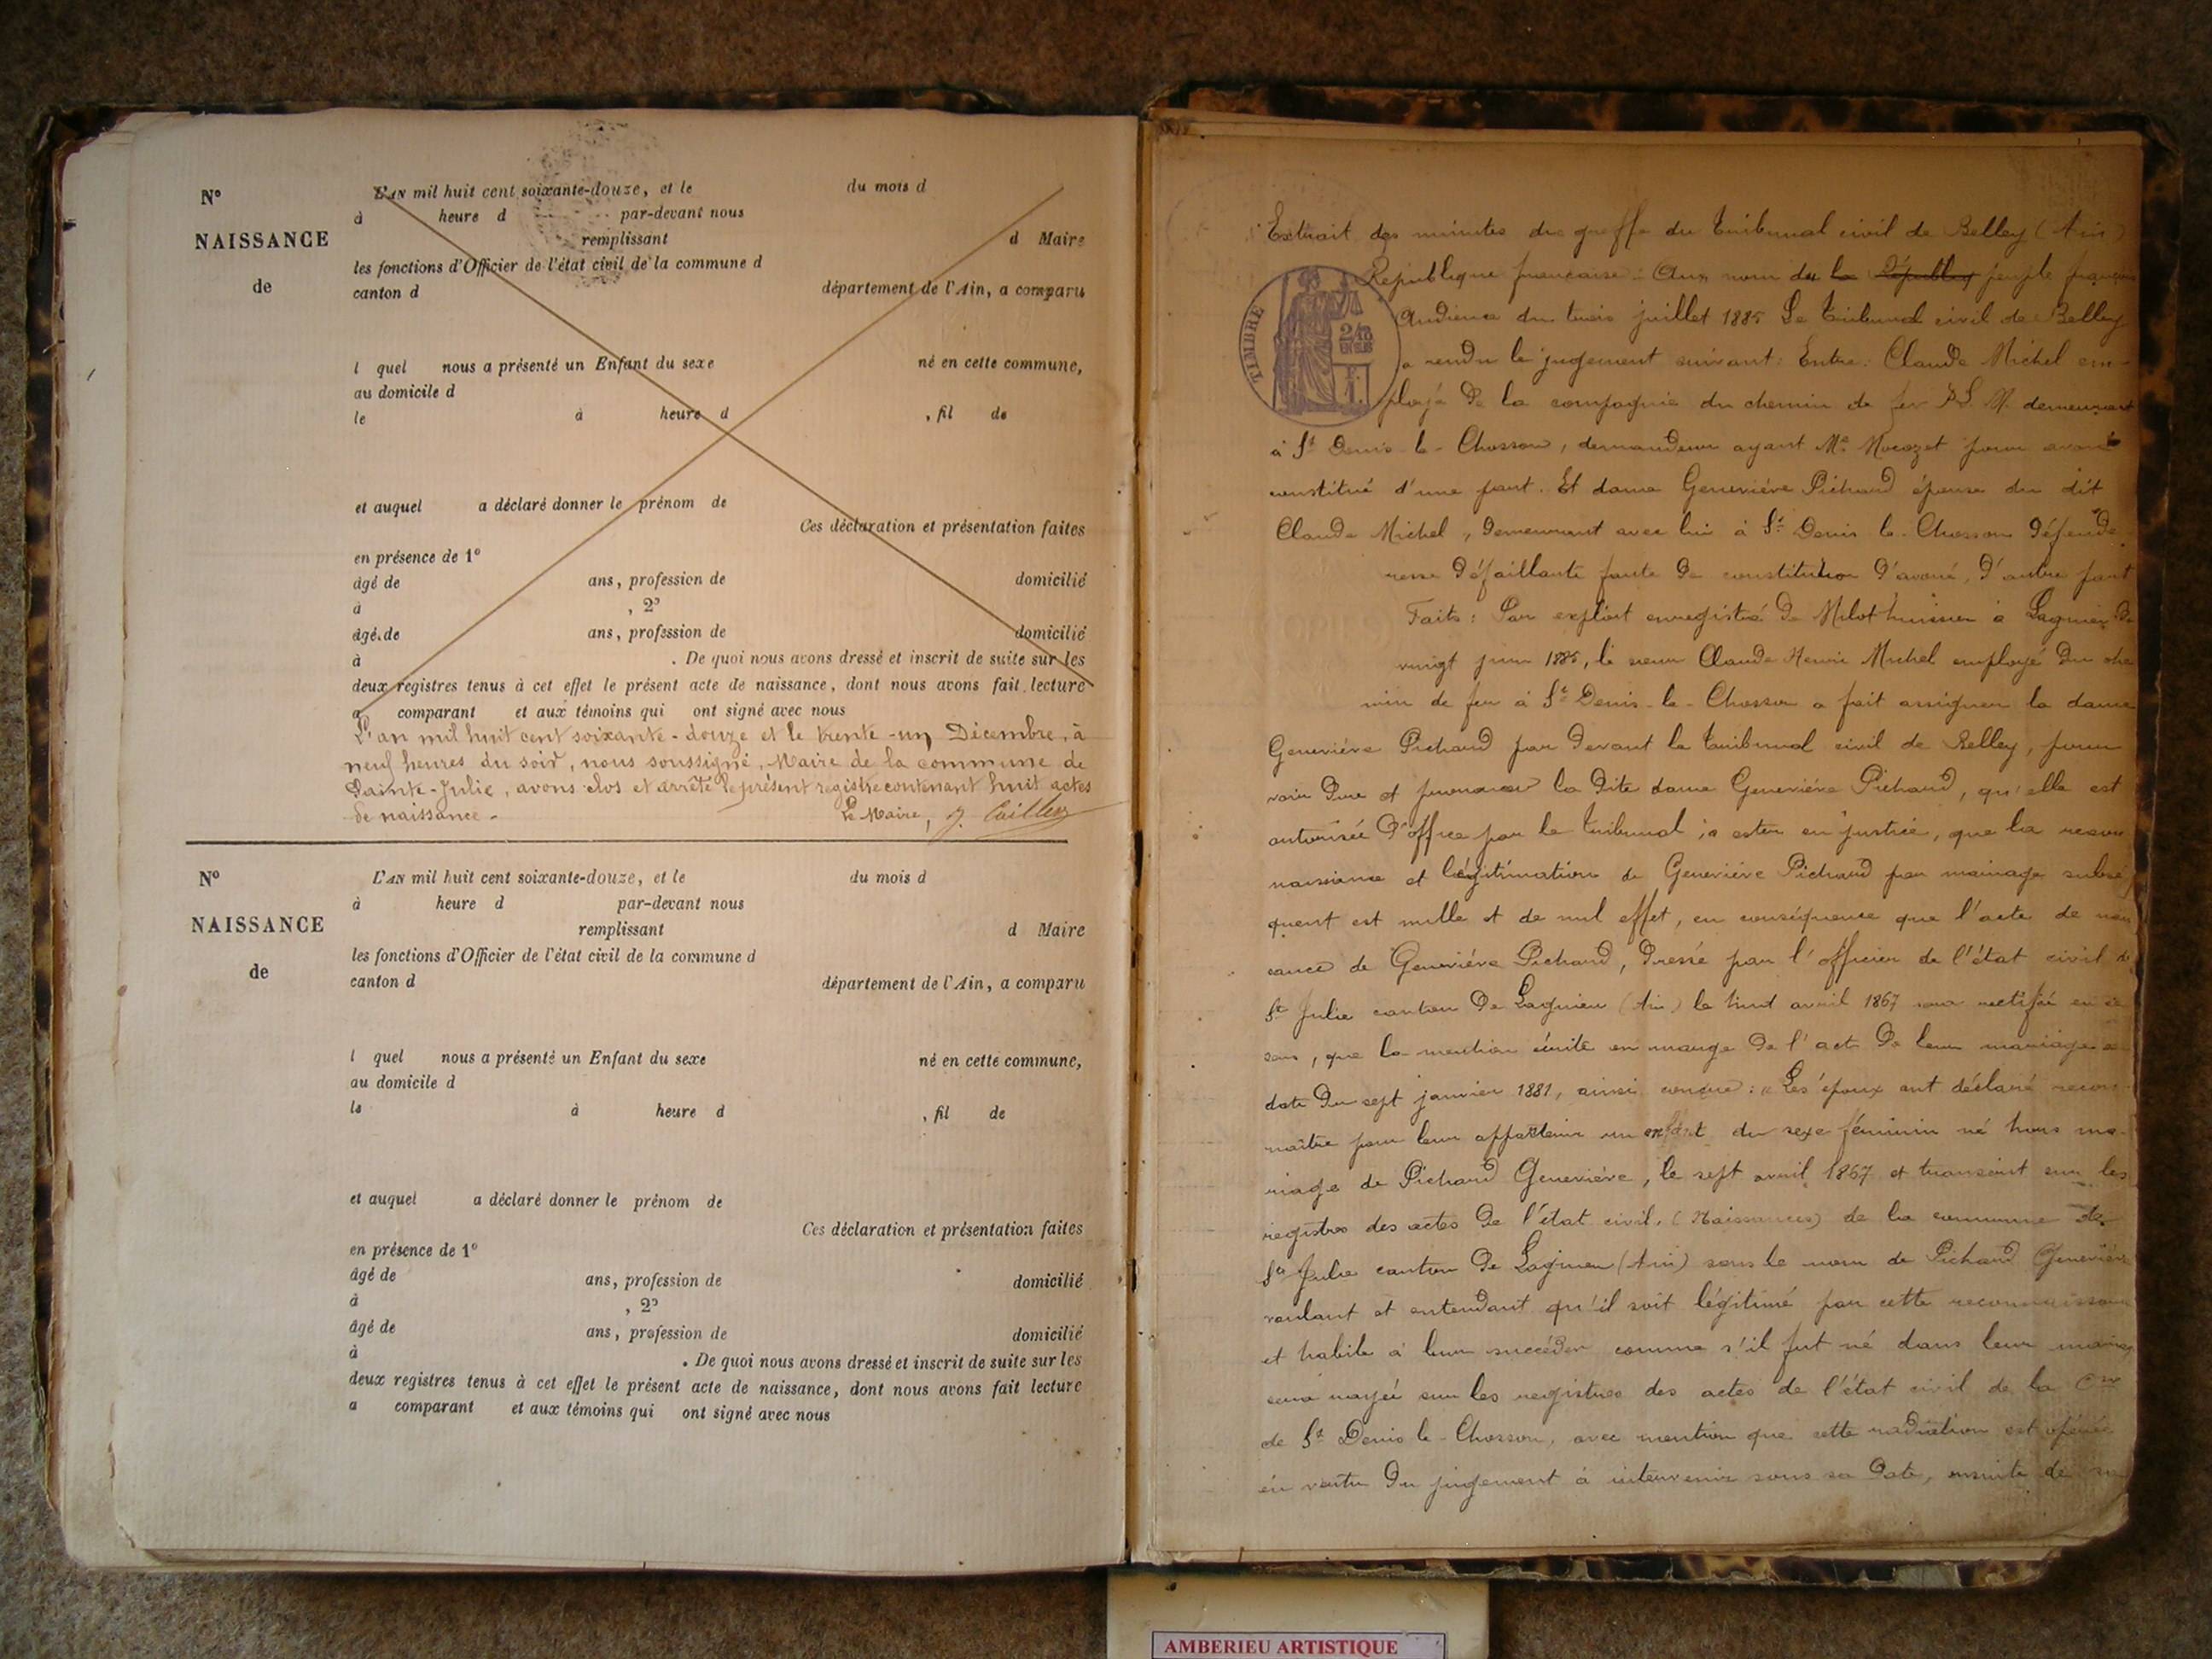 N° L'AN mil huit cent soixante-douze, et le du mois d
à heure d par-devant nous
NAISSANCE remplissant d Maire
les fonctions d'Officier de l'état civil de la commune d
de canton d département de l'Ain, a comparu
l quel nous a présenté un Enfant du sexe né en cette commune,
au domicile d
le à heure d , fil de
et auquel a déclaré donner le prénom de
Ces déclaration et présentation faites
en présence de 1°
âgé de ans, profession de domicilié
à , 2°
âgé de ans, profession de domicilié
à . De quoi nous avons dressé et inscrit de suite sur les
deux registres tenus à cet effet le présent acte de naissance, dont nous avons fait lecture
a comparant et aux témoins qui ont signé avec nous
L'an mil huit cent soixante-douze et le trente-un Décembre, à
neuf heures du soir, nous soussigné, Maire de la commune de
Sainte-Julie, avons clos et arrêté le présent registre contenant huit actes
de naissance.- Le Maire, J.
N° L'AN mil huit cent soixante-douze, et le du mois d
à heure d par-devant nous
NAISSANCE remplissant d Maire
les fonctions d'Officier de l'état civil de la commune d
de canton d département de l'Ain, a comparu
l quel nous a présenté un Enfant du sexe né en cette commune,
au domicile d
le à heure d , fil de
et auquel a déclaré donner le prénom de
Ces déclaration et présentation faites
en présence de 1°
âgé de ans, profession de domicilié
à , 2°
âgé de ans, profession de domicilié
à . De quoi nous avons dressé et inscrit de suite sur les
deux registres tenus à cet effet le présent acte de naissance, dont nous avons fait lecture
a comparant et aux témoins qui ont signé avec nous
Extrait des minutes du greffe du tribunal civil de Belley (Ain)
République française. Au nom du peuple français
TIMBRE
Audience du trois juillet 1885 Le tribunal civil de Belley
a rendu le jugement suivant: Entre: Claude Michel em-
ployé de la compagnie du chemin de fer P.L.M. demeurant
à St Denis-le-Chosson, demandeur ayant Me pour avoué
constitué d'une part. Et dame Geneviève Pichard épouse du dit
Claude Michel, demeurant avec lui à St Denis-le-Chosson défende-
resse défaillante faute de constitution d'avoué, d'autre part
Faits: Par exploit enregistré de Milot huissier à Lagnieu du
vingt juin 1885, le sieur Claude Henri Michel employé du che
min de fer à St Denis-le-Chosson a fait assigner la dame
Geneviève Pichard par devant le tribunal civil de Belley, pour
voir dire et prononcer la dite dame Geneviève Pichard, qu'elle est
autorisée d'office par le tribunal à ester en justice, que la recon
naissance et légitimation de Geneviève Pichard par mariage subsé
quent est nulle et de nul effet, en conséquence que l'acte de nais
sance de Geneviève Pichard, dressé par l'officier de l'état civil de
Ste Julie canton de Lagnieu (Ain) le huit avril 1867 sera rectifié en ce
sens, que la mention écrite en marge de l'acte de leur mariage en
date du sept janvier 1881, ainsi conçue: "Les époux ont déclaré recon-
naître pour leur appartenir un enfant du sexe féminin né hors ma-
riage de Pichard Geneviève, le sept avril 1867 et transcrit sur les
registres des actes de l'état civil. (Naissances) de la commune de
Ste Julie canton de Lagnieu (Ain) sous le nom de Pichard Geneviève
voulant et entendant qu'il soit légitimé par cette reconnaissance
et habile à leur succéder comme s'il fut né dans leur mariage
sera rayée sur les registres des actes de l'état civil de la Cne
de St Denis le-Chosson, avec mention que cette radiation est opérée
en vertu du jugement à intervenir sous sa date, ensuite de sa
AMBERIEU ARTISTIQUE